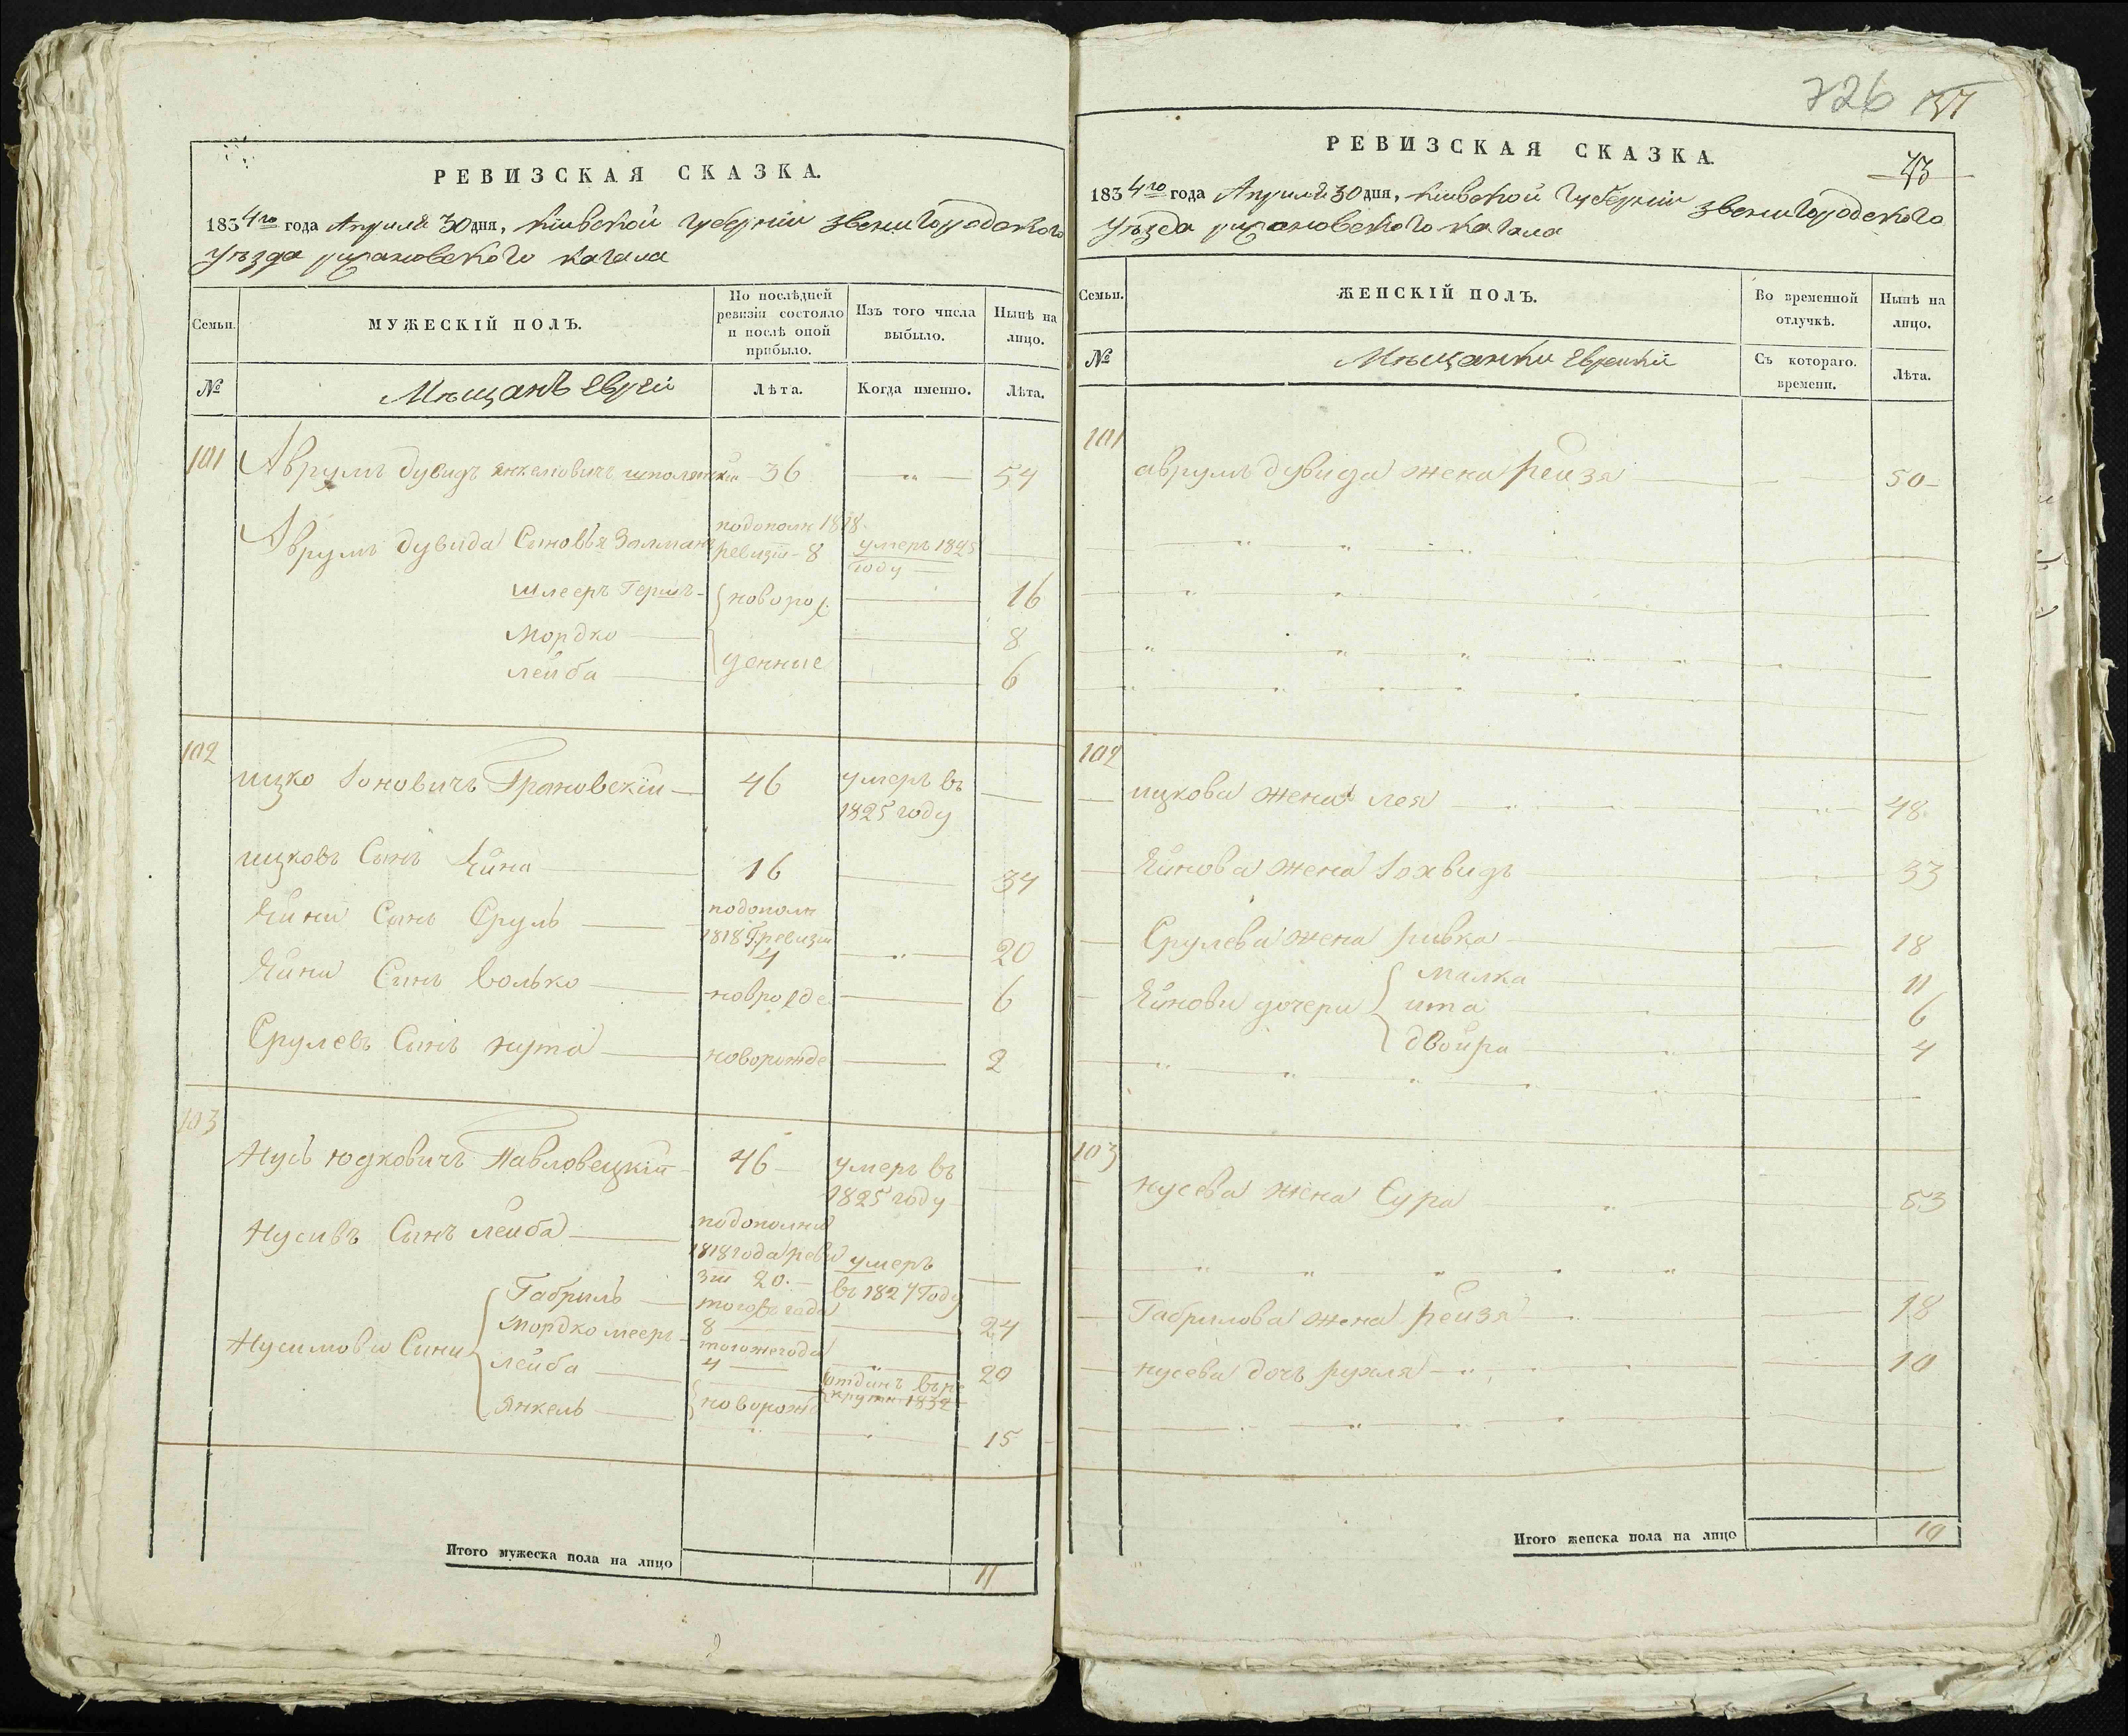 РЕВИЗСКАЯ СКАЗКА.
1834го года Апреля 30 дня, Киевской губернии Звенигородского
уезда рыжановского кагала
Семьи.
МУЖЕСКІЙ ПОЛЪ.
По послѣдней ревизіи состояло и послѣ оной прибыло.
Изъ того числа выбыло.
Нынѣ на лицо.
№
Мещанъ Еврей
Лѣта.
Когда именно.
Лѣта.
101 Аврумъ дувидъ янкелювичъ шполянскій 36 54
Аврумъ дувида Сыновья Залманъ
подополн 1818
ревизіи - 8 умеръ 1825
году
шлееръ Гершъ новорож 16
Мордко 8
Лейба денные 6
102
ицко Іоновичъ Грановскій 46 умеръ въ
1825 году
ицковъ Сынъ Яйна 16 34
Яйни Сынъ Сруль подополн
1818 Г. ревизіи
4 20
Яйни Синъ Волько новрожде 6
Срулевъ Синъ нута новорожде 2
103
Нусь юдковичъ Павловецкій 46 умеръ въ
1825 году
Нусивъ Сынъ лейба подополни
1818 года реви умеръ
зіи 20. въ 1827 Году
Габриль тогожъ года
8 24
Нусимови Сини Мордко мееръ тогоже года
4 20
лейба отданъ въ ре
круты 1832
янкель новорож 15
Итого мужеска пола на лицо 11
726
43
РЕВИЗСКАЯ СКАЗКА.
1834го года Апреля 30 дня, Киевской губернии Звенигородского
уезда рыжановского кагала
Семьи.
ЖЕНСКІЙ ПОЛЪ.
Во временной отлучкѣ.
Нынѣ на лицо.
№
Мещанки Еврейки
Съ котораго. времени.
Лѣта.
101
аврумъ дувида жена рейзя 50
102
ицкова жена лея 48
Яйнова жена Іохвидъ 33
Срулева жена ривка 18
Яйнови дочери Малка 11
ита 6
двойра 4
103
нусева жена Сура 53
Габрилова жена рейзя 18
нусева дочъ рухля 10
Итого женска пола на лицо 10